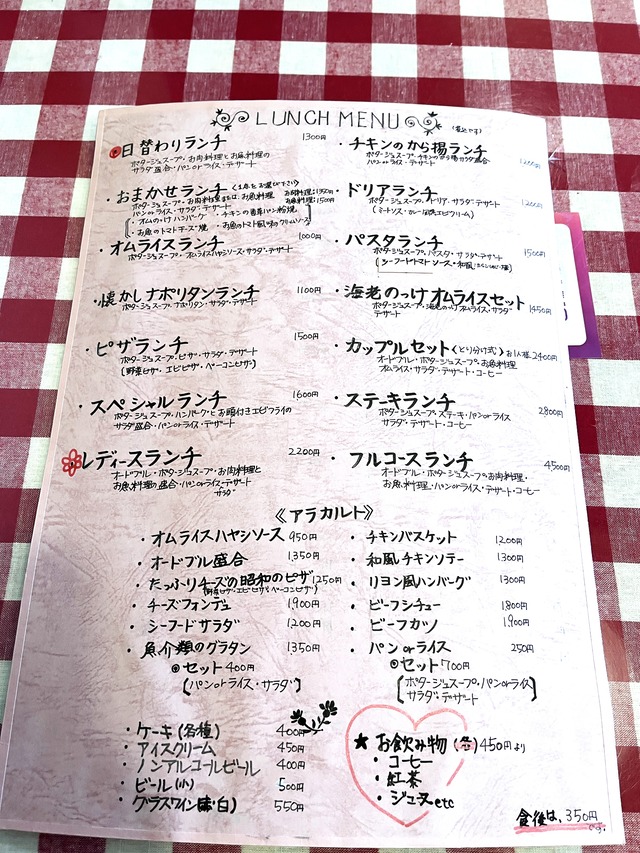 LUNCH MENU
(税込です)
日替わりランチ 1300円
ポタージュスープ・お肉料理とお魚料理の
サラダ盛合・パンorライス・デザート
・おまかせランチ〈1品をお選び下さい〉
ポタージュスープ・お肉料理またはお魚料理 お肉料理1350円
パンorライス・サラダ・デザート お魚料理1500円
・オムのっけハンバーグ ・チキンの香草パン粉焼
・お魚のトマトチーズ焼 ・お魚のトマト風味のクリームソース
・オムライスランチ 1000円
ポタージュスープ・オムライスハヤシソース・サラダ・デザート
・懐かしナポリタンランチ 1100円
ポタージュスープ・ナポリタン・サラダ・デザート
・ピザランチ 1500円
ポタージュスープ・ピザ・サラダ・デザート
(野菜ピザ・エビピザ・ベーコンピザ)
・スペシャルランチ 1600円
ポタージュスープ・ハンバーグとお頭付きエビフライの
サラダ盛合・パンorライス・デザート
レディースランチ 2200円
オードブル・ポタージュスープ・お肉料理と
お魚料理の盛合・パンorライス・デザート
サラダ
・チキンのから揚ランチ 1200円
ポタージュスープ・チキンのから揚サラダ盛合
パンorライス・デザート
・ドリアランチ 1200円
ポタージュスープ・ドリア・サラダ・デザート
(ミートソース・カレー・クリーム)
・パスタランチ 1500円
ポタージュスープ・パスタ・サラダ・デザート
(シーフードトマトソース・和風)
・海老のっけオムライスセット 1450円
ポタージュスープ・海老のっけオムライス・サラダ
デザート
・カップルセット〈とり分け式〉お1人様2400円
オードブル・ポタージュスープ・お魚料理
オムライス・サラダ・デザート・コーヒー
・ステーキランチ 2800円
ポタージュスープ・ステーキ・パンorライス
サラダ・デザート・コーヒー
・フルコースランチ 4500円
オードブル・ポタージュスープ・お肉料理・
お魚料理・パンorライス・デザート・コーヒー
《アラカルト》
・オムライスハヤシソース 950円
・オードブル盛合 1,350円
・たっぷりチーズの昭和のピザ 1250円
(野菜ピザ・エビピザ・ベーコンピザ)
・チーズフォンデュ 1,900円
・シーフードサラダ 1200円
・魚介類のグラタン 1350円
◎セット400円
(パンorライス・サラダ)
・チキンバスケット 1200円
・和風チキンソテー 1300円
・リヨン風ハンバーグ 1300円
・ビーフシチュー 1800円
・ビーフカツ 1,900円
・パンorライス 250円
◎セット700円
[ポタージュスープ・パンorライス
サラダ・デザート]
・ケーキ(各種) 400円
・アイスクリーム 450円
・ノンアルコールビール 400円
・ビール(小) 500円
・グラスワイン(赤・白) 550円
★お飲み物(各)450円より
・コーヒー
・紅茶
・ジュースetc
食後は、350円
です。